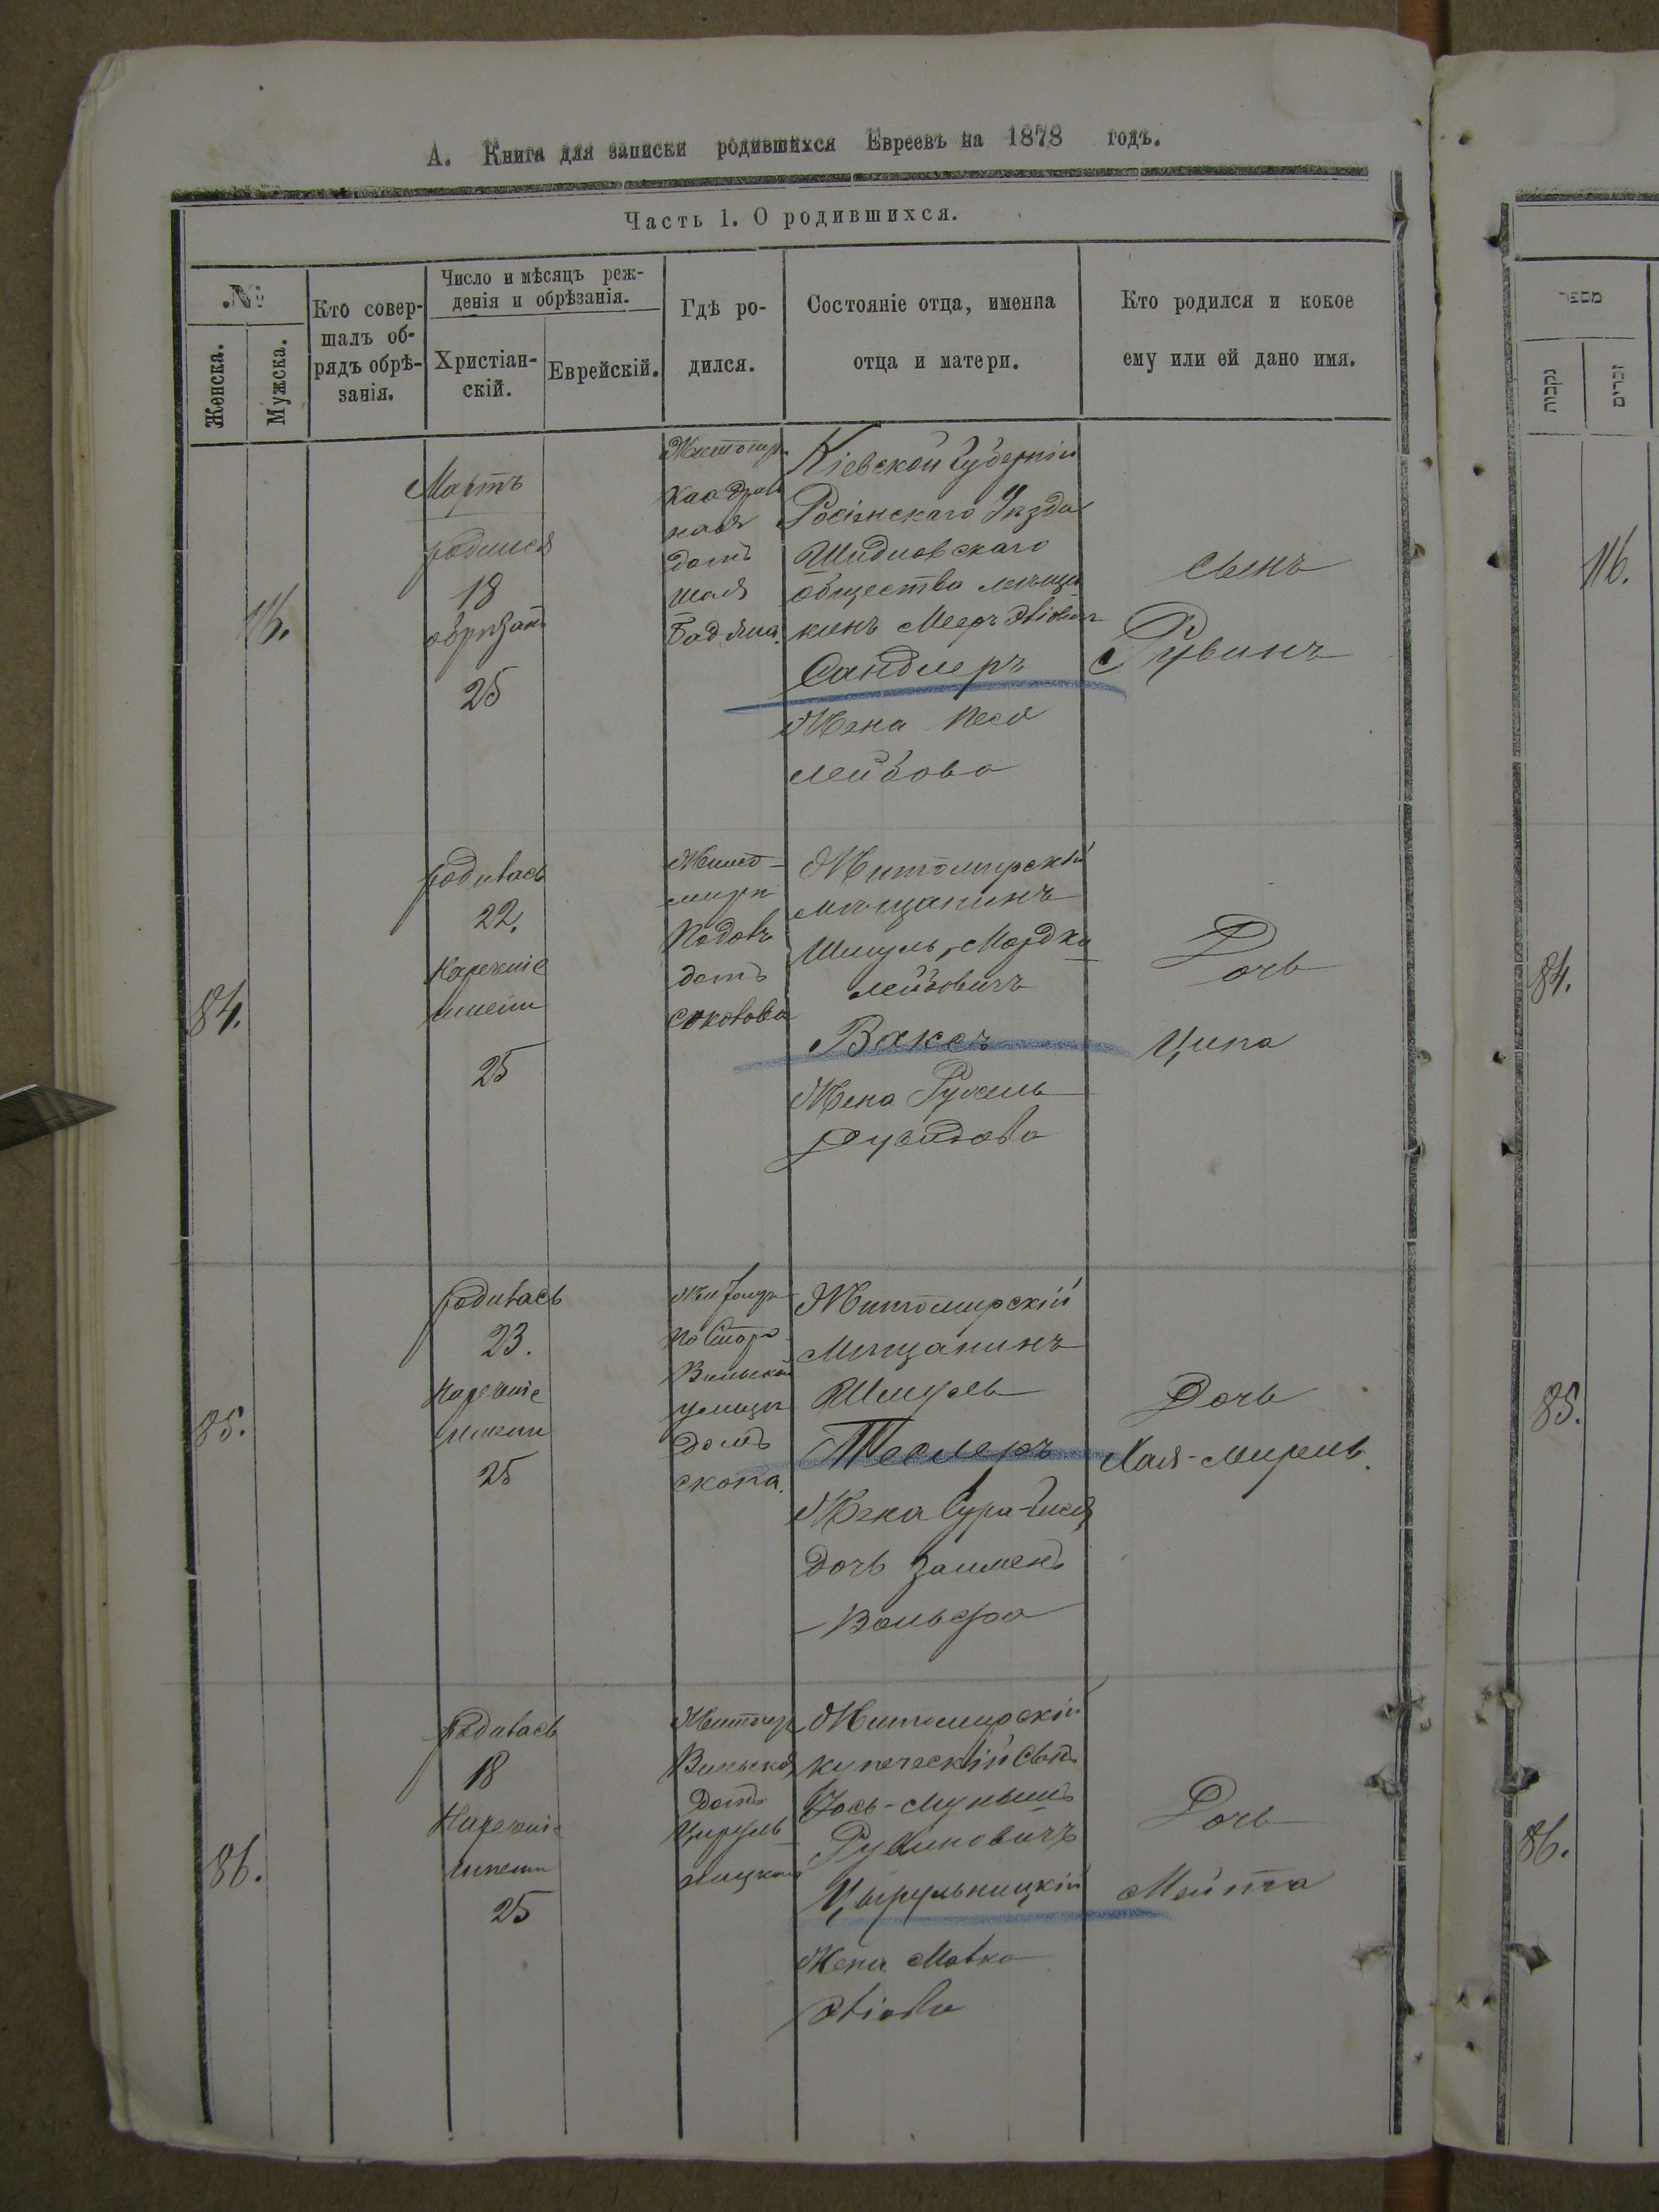 А. Книга для записки родившихся Евреевъ на 1878 годъ.
Часть 1. О родившихся.
№
Женска.
Мужска.
Кто совер-
шалъ об-
рядъ обрѣ-
занія.
Число и мѣсяцъ реж-
денія и обрѣзанія.
Христіан-
скій.
Еврейскій.
Гдѣ ро-
дился.
Состояніе отца, именна
отца и матери.
Кто родился и кокое
ему или ей дано имя.
116.
Мартъ
родился
18
обрѣзанъ
25
домъ
Кіевской Губерніи
Уѣзда
общества мѣща
нинъ Мееръ
Сандлеръ
Жена Песя
Лейбова
сынъ
Рувинъ
84.
родилась
22.
Нареченіе
имени
25
Жито-
миръ
домъ
Соколова
Житомирскій
мѣщанинъ
Шмуль-Мордко
Лейбовичъ
Ваксъ
Жена Рухель
Дочь
Ципа
85.
родилась
23.
Нареченіе
имени
25
Вильской
улицы
домъ
Житомирскій
Мѣщанинъ
Шмуль
Теслеръ
Жена Сура-
дочь
Вольфа
Дочь
Хая-Мирель.
86.
родилась
18
Нареченіе
имени
25
Житомир
Вильской
домъ
Цируль
ницкого
Житомирскій
купеческій сынъ
Іось-
Рувиновичъ
Цырульницкій
Жена Малка
Дочь
Мейта
מספר
נקבות
זכרים
116.
84.
85.
86.